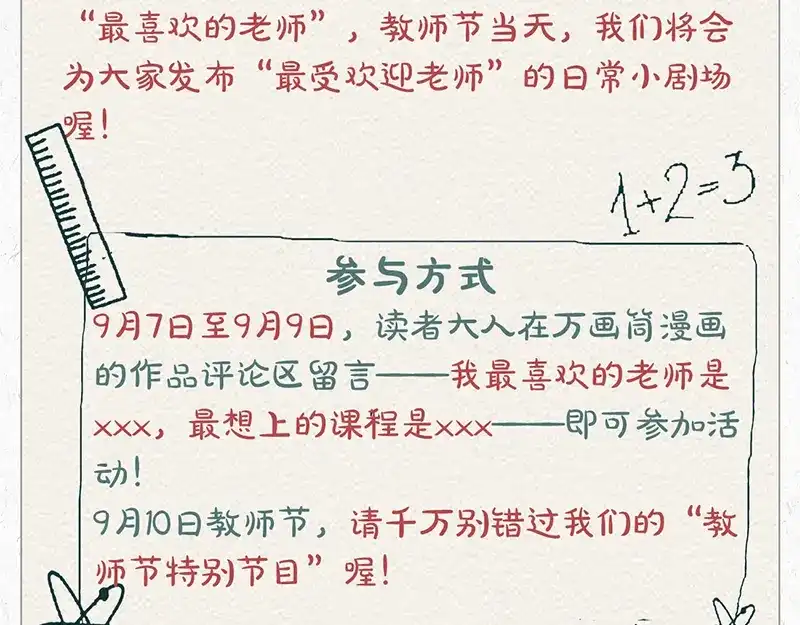 “最喜欢的老师”，教师节当天，我们将会
为大家发布“最受欢迎老师”的日常小剧场
喔！
1+2=3
参与方式
9月7日至9月9日，读者大人在万画筒漫画
的作品评论区留言——我最喜欢的老师是
xxx，最想上的课程是xxx——即可参加活
动！
9月10日教师节，请千万别错过我们的“教
师节特别节目”喔！